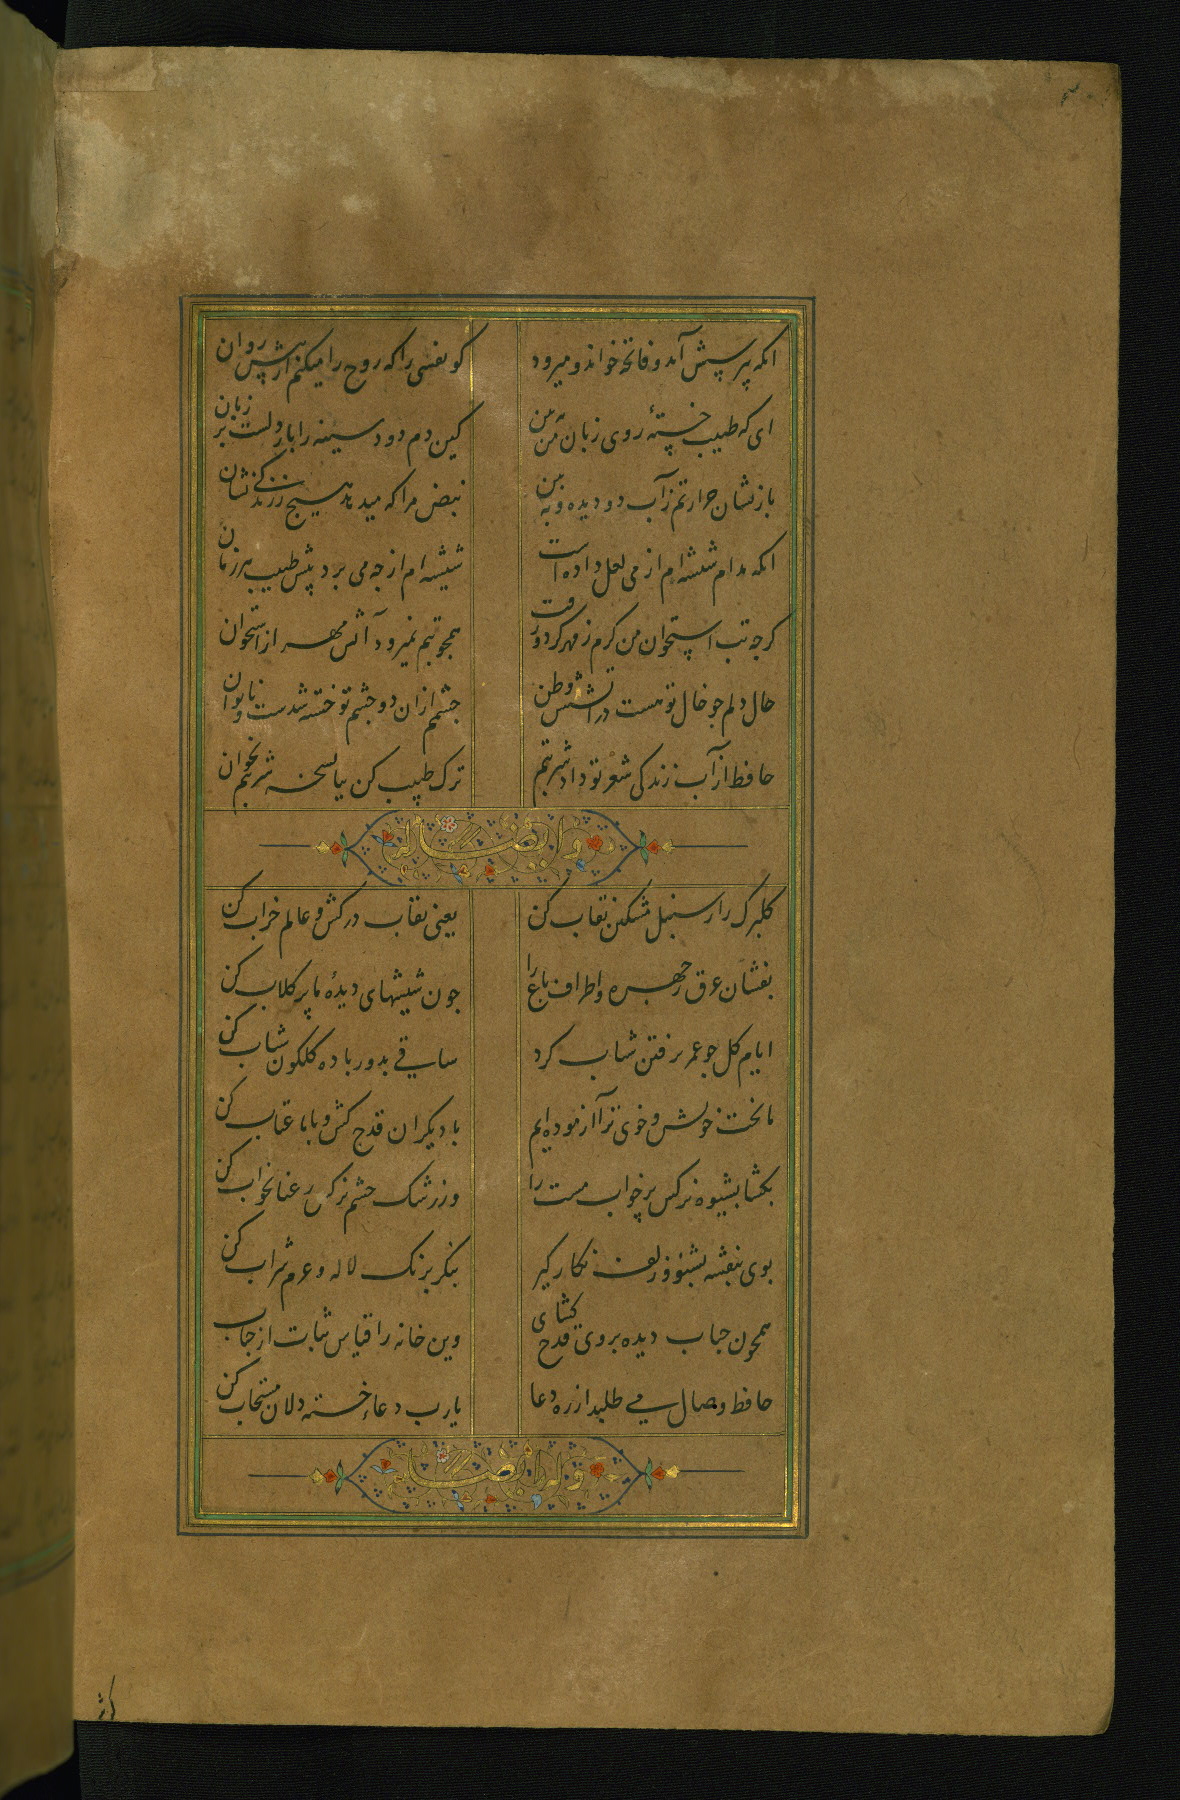 انکه پرسش آمد و فاتحه خواند و میرود
کو نفسی را که روح را میکنم از پیش روان
ای که طبیب خستهٔ روی زبان من به من
کین دم دود سینه را بار دلست بر زبان
باز نشان حرارتم ز آب دو دیده و به بین
نبض مرا که میدهد هیچ ز زندگی نشان
انکه مدام شیشه ام از می لعل داده است
شیشه ام از چه می برد پیش طبیب هر زمان
کرچه تب استخوان من کرم ز مهر کرد و رفت
همچو تبم نمیرود آتش مهر از استخوان
حال دلم جو خال تو هست در آتشش وطن
جشمم از ان دو جشم تو خسته شدست و ناتوان
حافظ از آب زندکی شعر تو داد شربتم
ترک طبیب کن بیا نسخه شربتم بخوان
و ایضا له
کلبرک را ز سنبل مشکین نقاب کن
یعنی نقاب درکش و عالم خراب کن
بفشان عرق ز چهره و اطراف باغ را
جون شیشهای دیدهٔ ما پر کلاب کن
ایام کل جو عمر برفتن شتاب کرد
ساقی بدور باده کلکون شتاب کن
ما بخت خویش و خوی ترا آزموده ایم
با دیکران قدح کش و با ما عتاب کن
بکشا بشیوه نرکس پرخواب مست را
وز رشک جشم نرکس رعنا بخواب کن
بوی بنفشه بشنو و زلف نکار کیر
بنکر برنک لاله و عزم شراب کن
همچون حباب دیده بروی قدح کشای
وین خانه را قیاس ثبات از حباب
حافظ وصال می طلبد از ره دعا
یارب دعاء خسته دلان مستجاب کن
وله ایضا